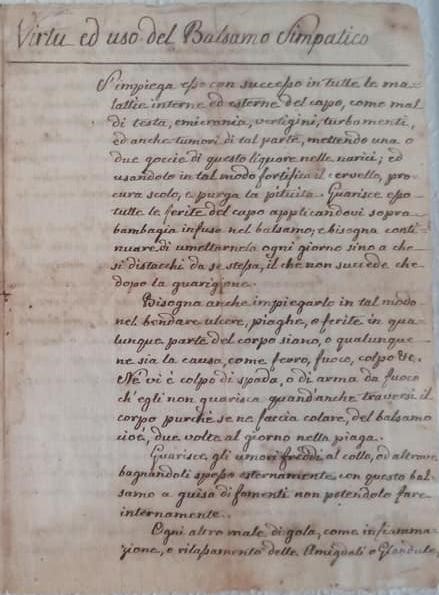 Virtu ed uso del Balsamo Simpatico
S'impiega esso con successo in tutte le ma=
lattie interne ed esterne del capo, come mal
di testa, emicrania, vertigini, turbamenti,
ed anche tumori di tal parte, mettendo una o
due goccie di questo liquore nelle narici; ed
usandolo in tal modo fortifica il cervello, pro=
cura scolo, e purga la pituita. Guarisce esso
tutte le ferite del capo applicandovi sopra
bambagia infusa nel balsamo; e bisogna conti=
nuare di umettarnela ogni giorno sino a che
si distacchi da se stessa, il che non succede che
dopo la guarigione.
Bisogna anche impiegarlo in tal modo
nel bendare ulcere, piaghe, o ferite in qua=
lunque parte del corpo siano, o qualunque
ne sia la causa, come ferro, fuoco, colpo &c.
Ne vi è colpo di spada, o di arma da fuoco
ch'egli non guarisca quand'anche traversi il
corpo purchè se ne faccia colare, del balsamo
cioè, due volte al giorno nella piaga.
Guarisce, gli umori freddi al collo, ed altrove
bagnandoli spesso esternamente con questo bal=
samo a guisa di fomenti non potendolo fare
internamente.
Ogni altro male di gola, come infiamma=
zione, o rilassamento delle Amigdali o Glandule,